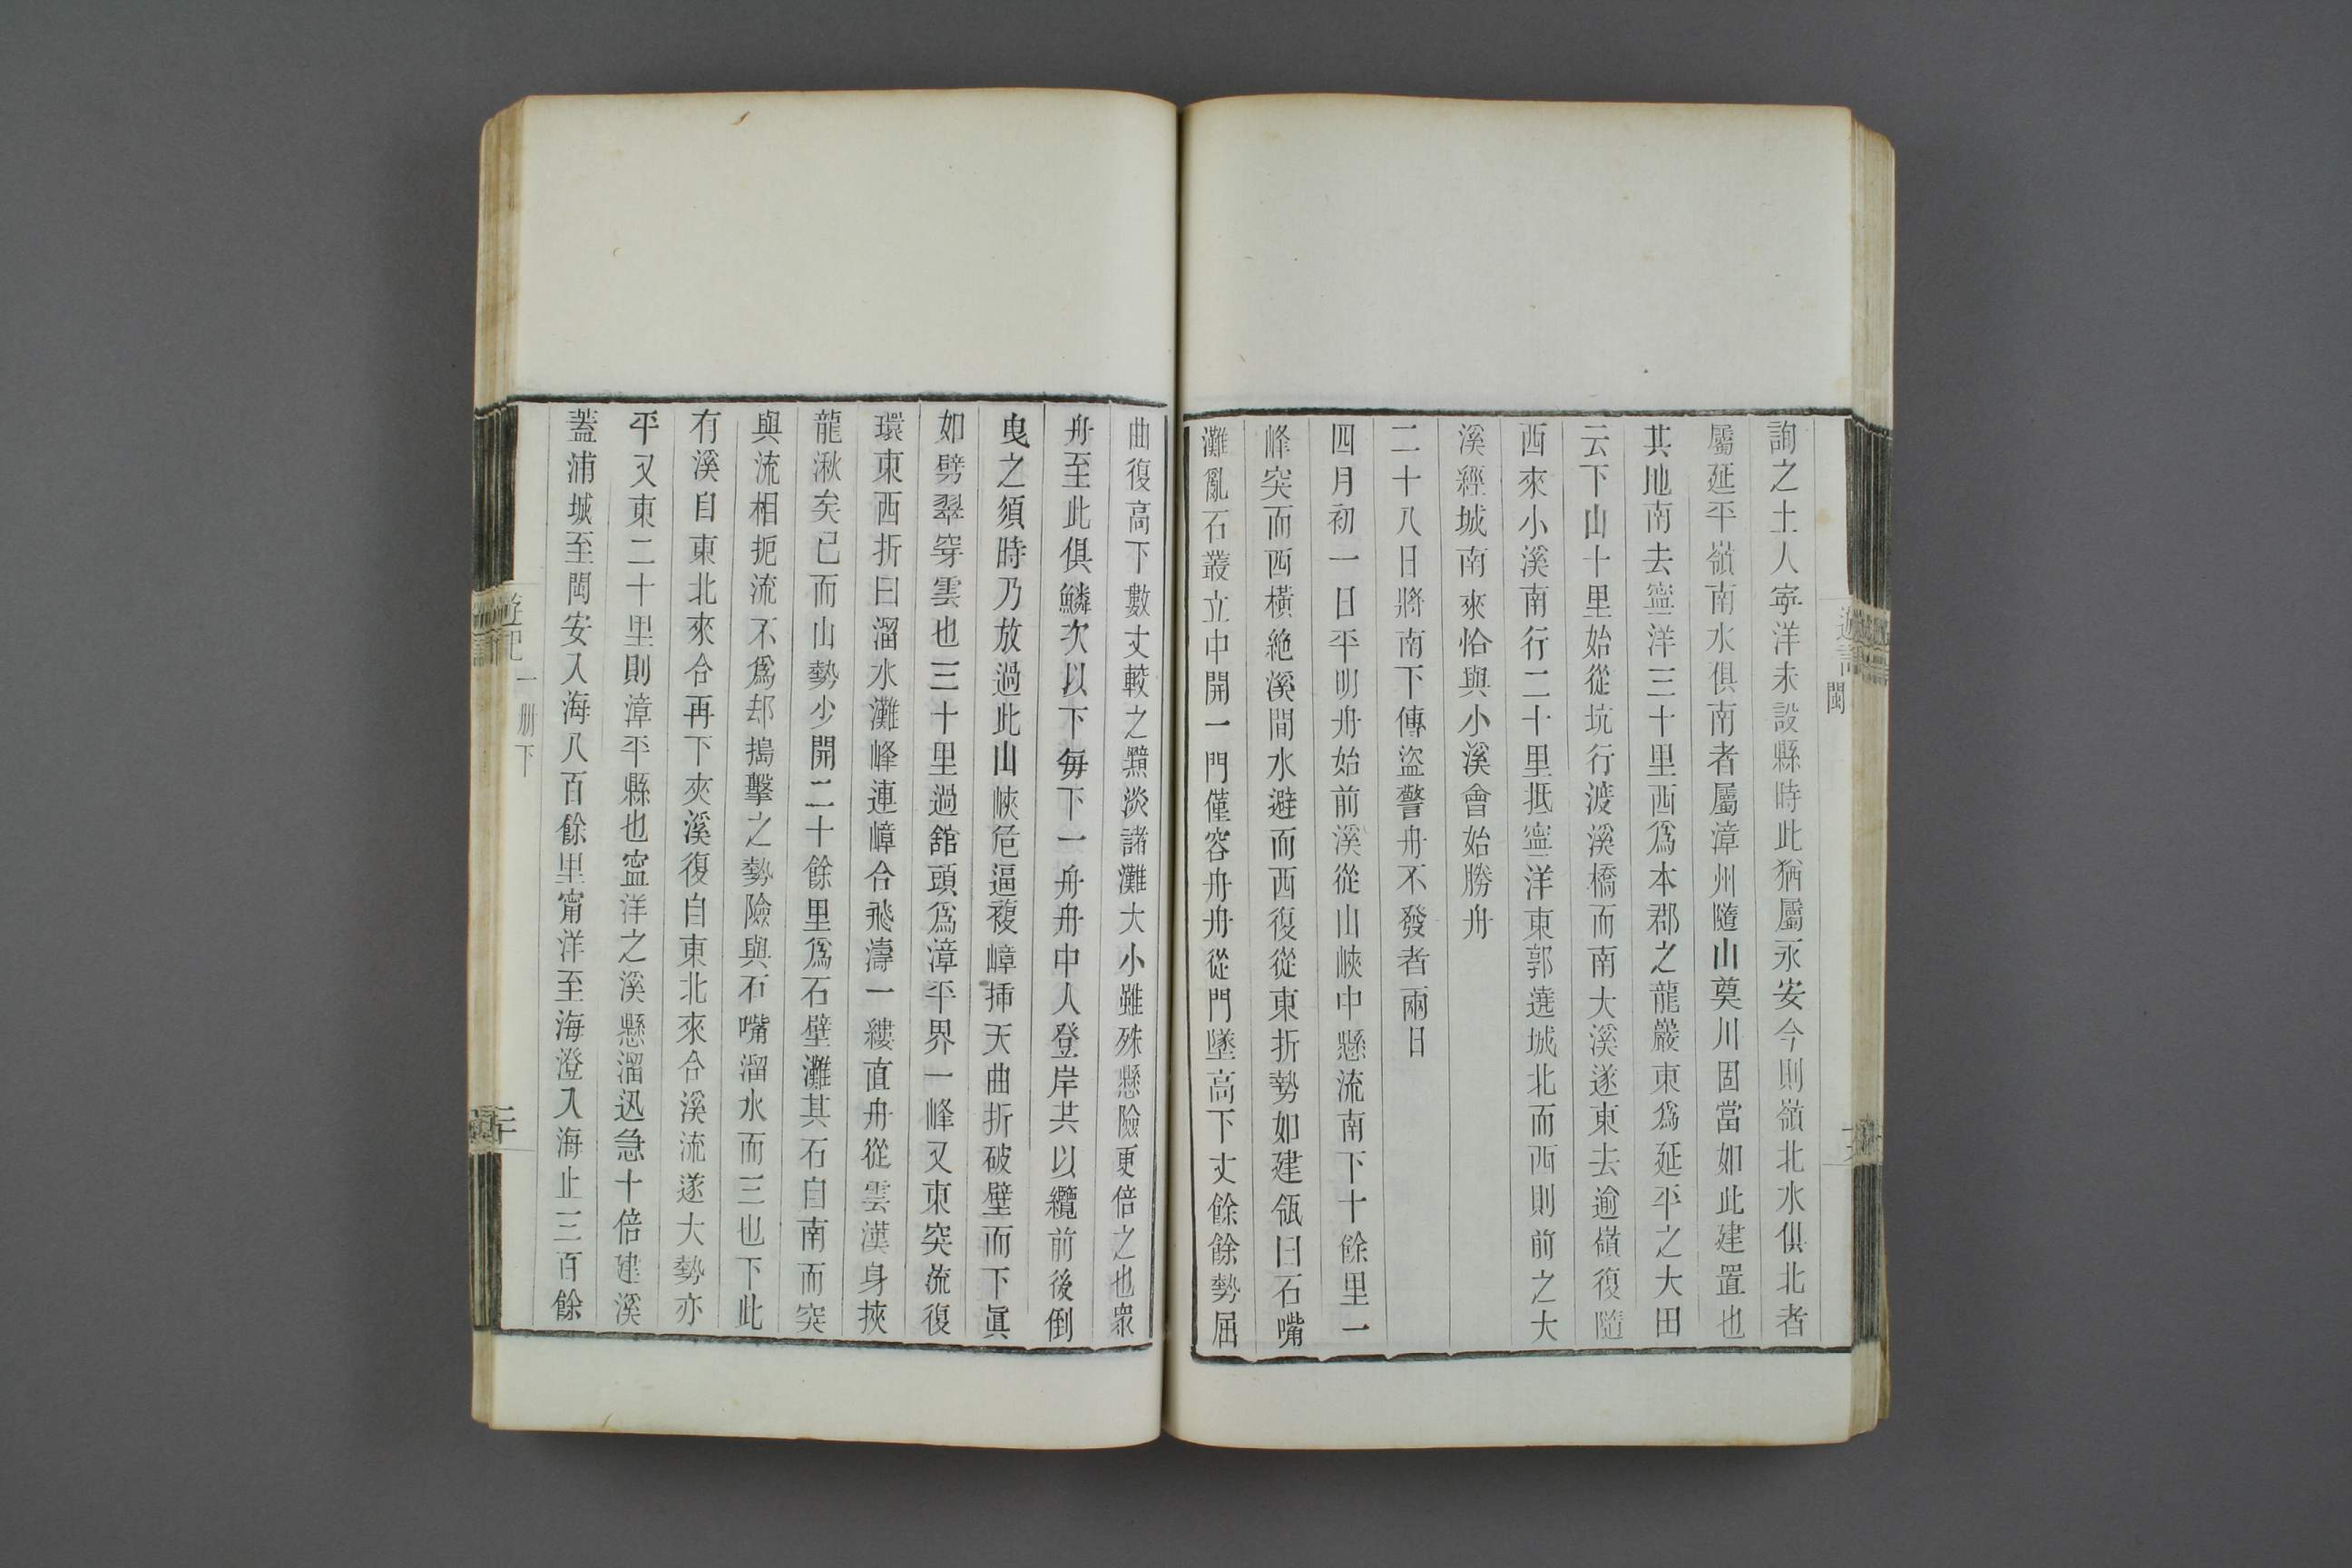 詢之土人寧洋未設縣時此猶屬永安今則嶺北水俱北者
屬延平嶺南水俱南者屬漳州隨山奠川固當如此建置也
其地南去寧洋三十里西爲本郡之龍巖東爲延平之大田
云下山十里始從坑行渡溪橋而南大溪遂東去逾嶺復隨
西來小溪南行二十里抵寧洋東郭遶城北而西則前之大
溪經城南來恰與小溪會始勝舟
二十八日將南下傳盜警舟不發者兩日
四月初一日平明舟始前溪從山峽中懸流南下十餘里一
峰突而西橫絶溪間水避而西復從東折勢如建瓴曰石嘴
灘亂石叢立中開一門僅容舟舟從門墜高下丈餘餘勢屈
曲復高下數丈較之黯淡諸灘大小雖殊懸險更倍之也衆
舟至此俱鱗次以下每下一舟舟中人登岸共以纜前後倒
曳之須時乃放過此山峽危逼複嶂揷天曲折破壁而下眞
如劈翠穿雲也三十里過舘頭爲漳平界一峰又東突流復
環東西折曰溜水灘峰連嶂合飛濤一縷直舟從雲漢身挾
龍湫矣已而山勢少開二十餘里爲石壁灘其石自南而突
與流相扼流不爲却搗擊之勢險與石嘴溜水而三也下此
有溪自東北來合再下夾溪復自東北來合溪流遂大勢亦
平又東二十里則漳平縣也寧洋之溪懸溜迅急十倍建溪
蓋浦城至閩安入海八百餘里甯洋至海澄入海止三百餘
遊記
一册下
二十
閩